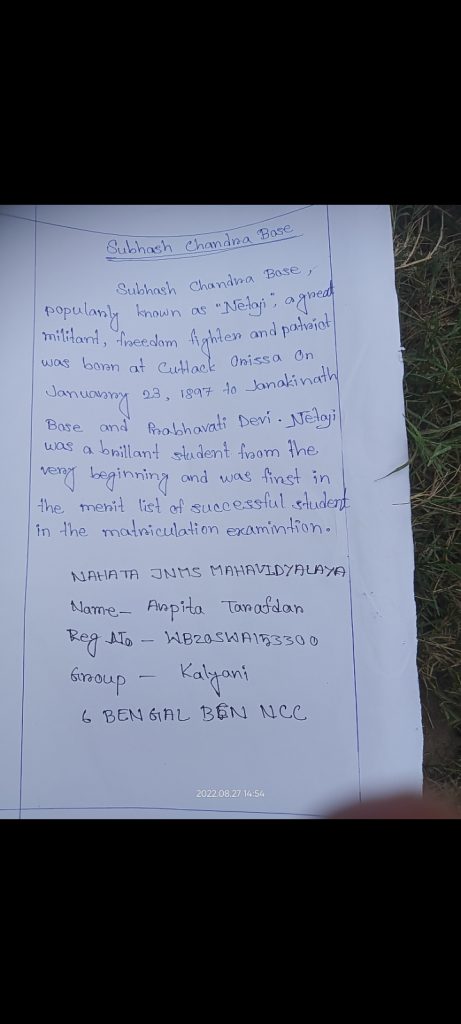 Subhash Chandra Base
Subhash Chandra Base,
popularly known as "Netaji", a great
militant, freedom fighter and patriot
was born at Cuttack Orissa On
Januanry 23, 1897 to Janakinath
Base and Prabhavati Devi. Netaji
was a brillant student from the
very beginning and was first in
the merit list of successful student
in the matriculation examintion.
NAHATA JNMS MAHAVIDYALAYA
Name- Arpita Tarafdar
Reg No - WB20SWA153300
Group - Kalyani
6 BENGAL BEN NCC
2022.08.27 14:54